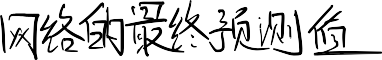 网络的最终预测值